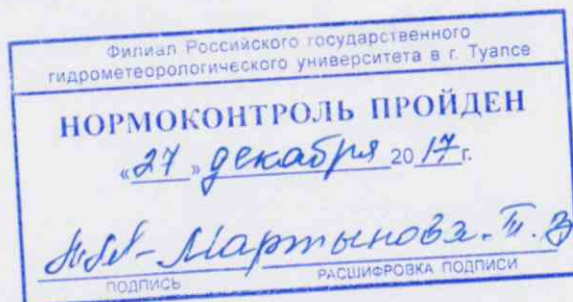 Филиал Российского государственного
гидрометеорологического университета в г. Туапсе
НОРМОКОНТРОЛЬ ПРОЙДЕН
«27» декабря 2017г.
Мартынова Т. В
ПОДПИСЬ РАСШИФРОВКА ПОДПИСИ